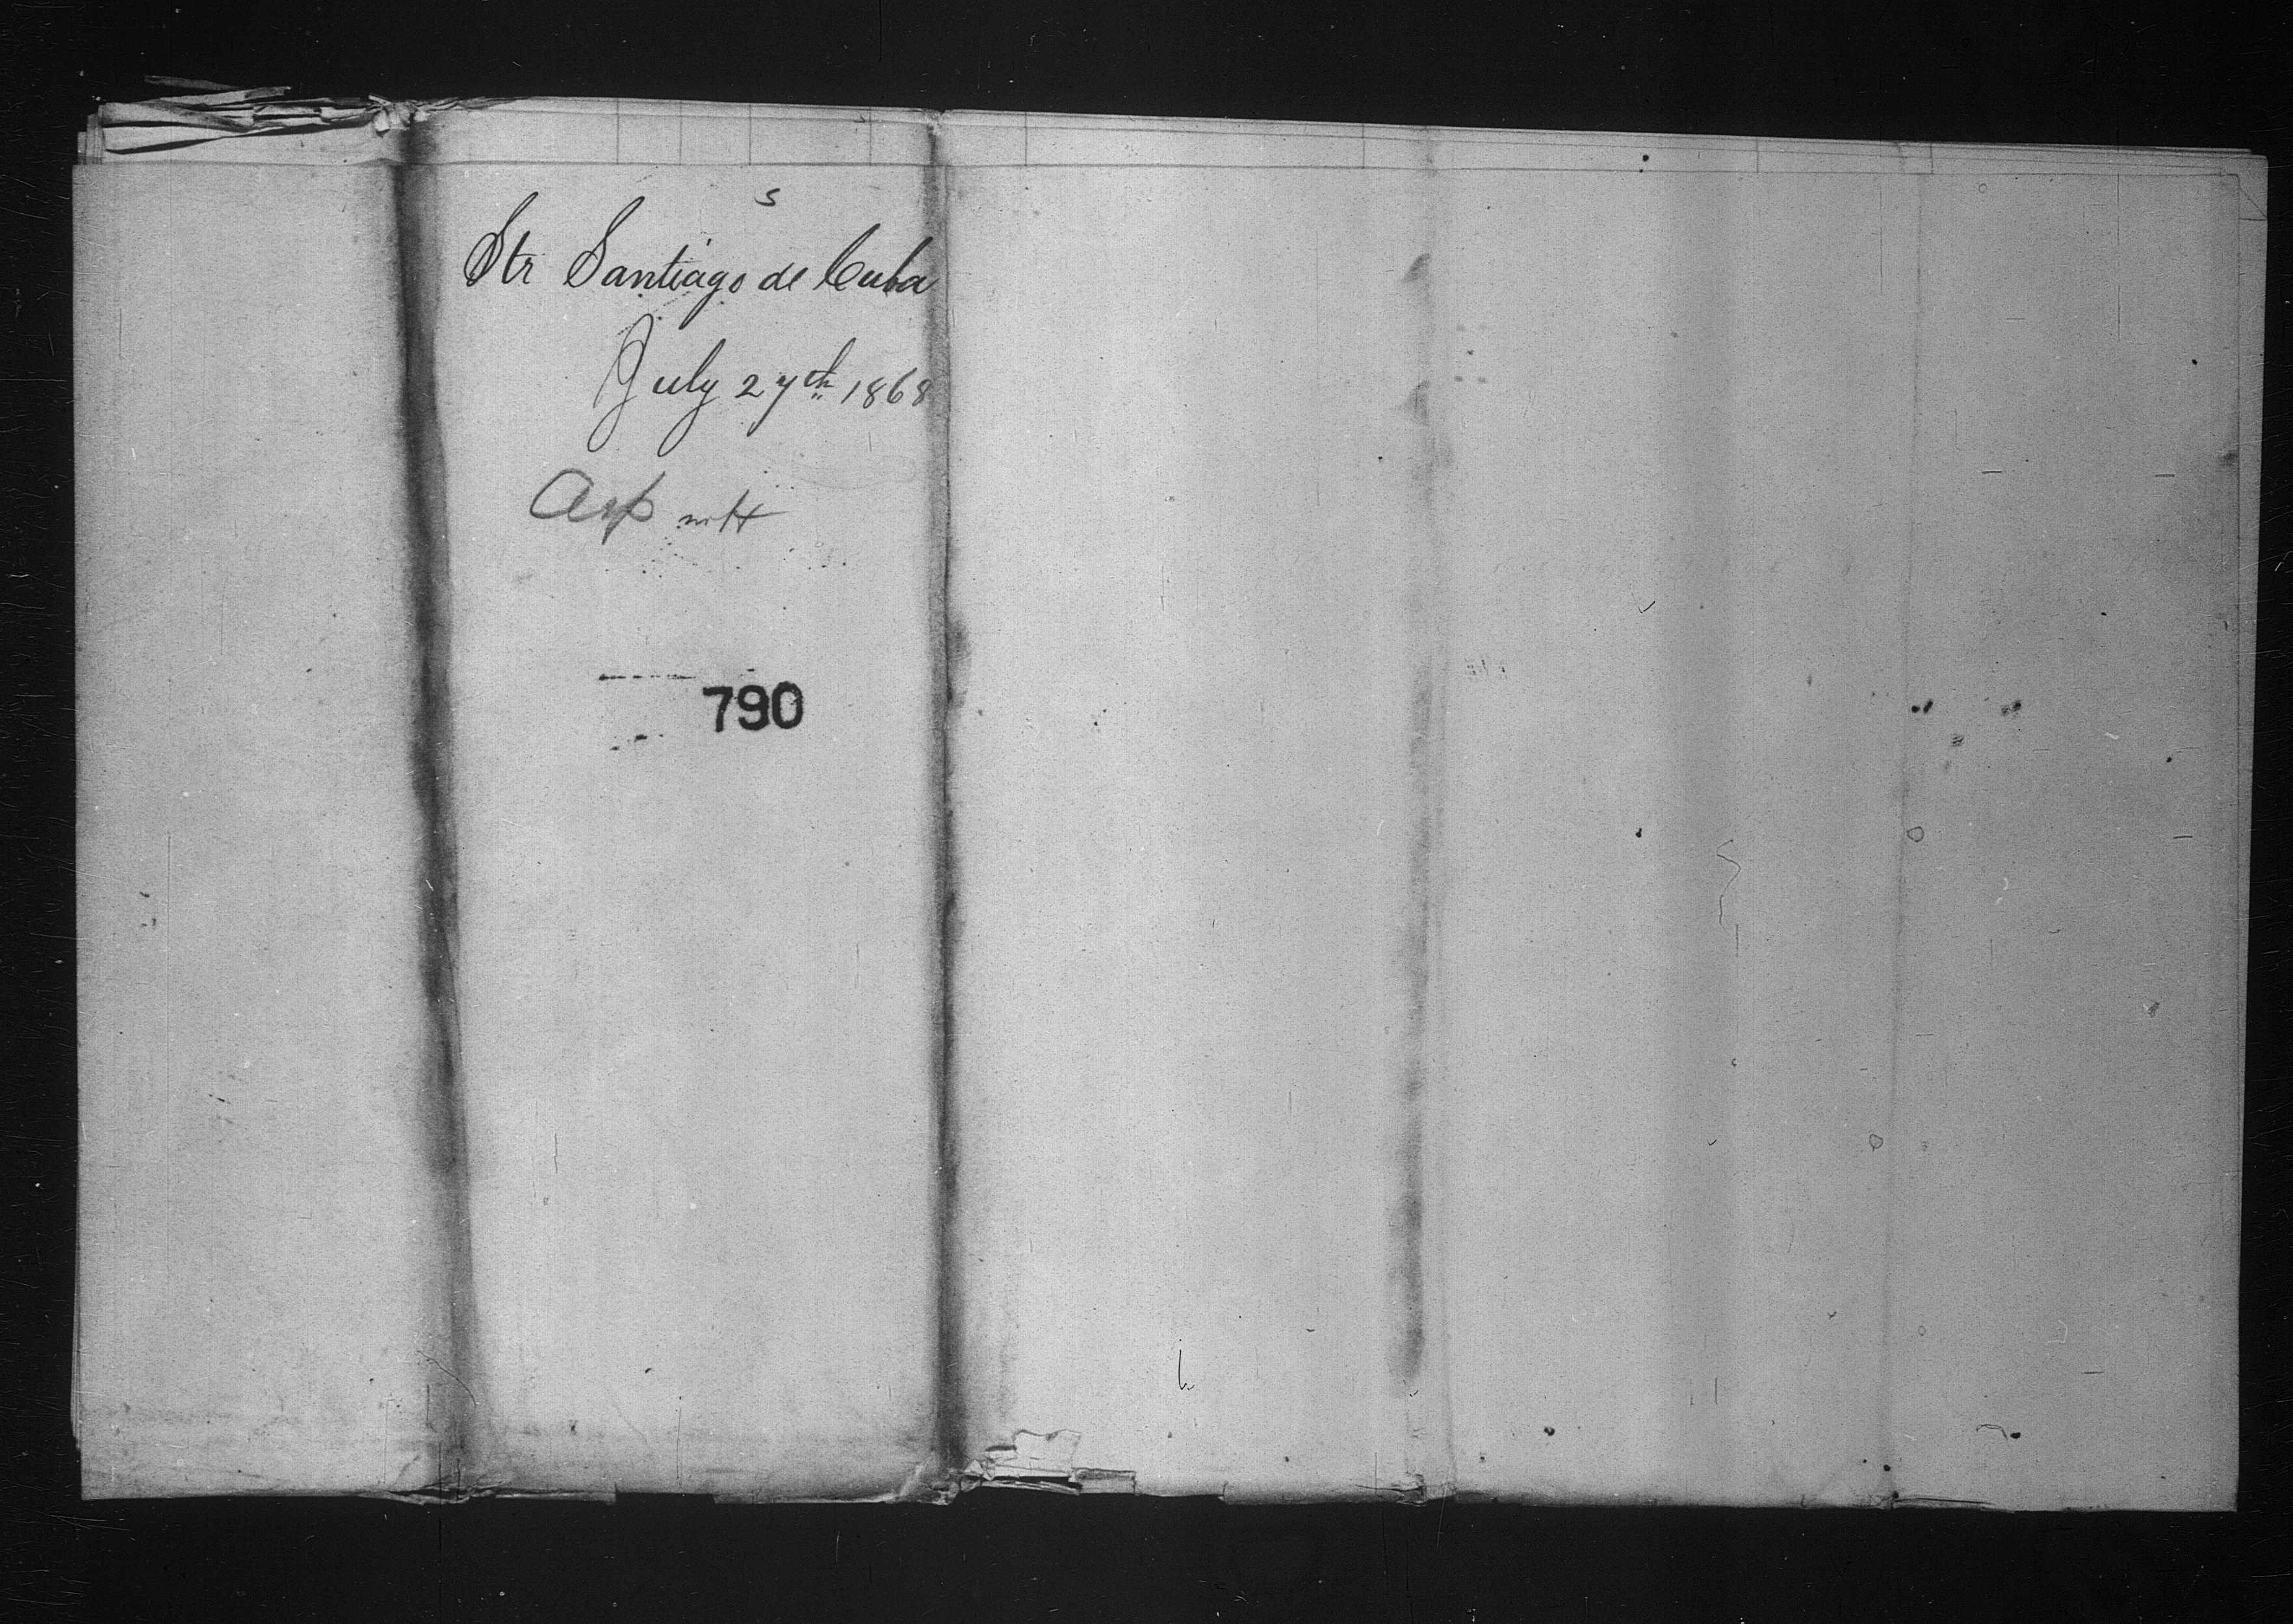 S
Str Santiago de Cuba
July 27th 1868
Asp
790